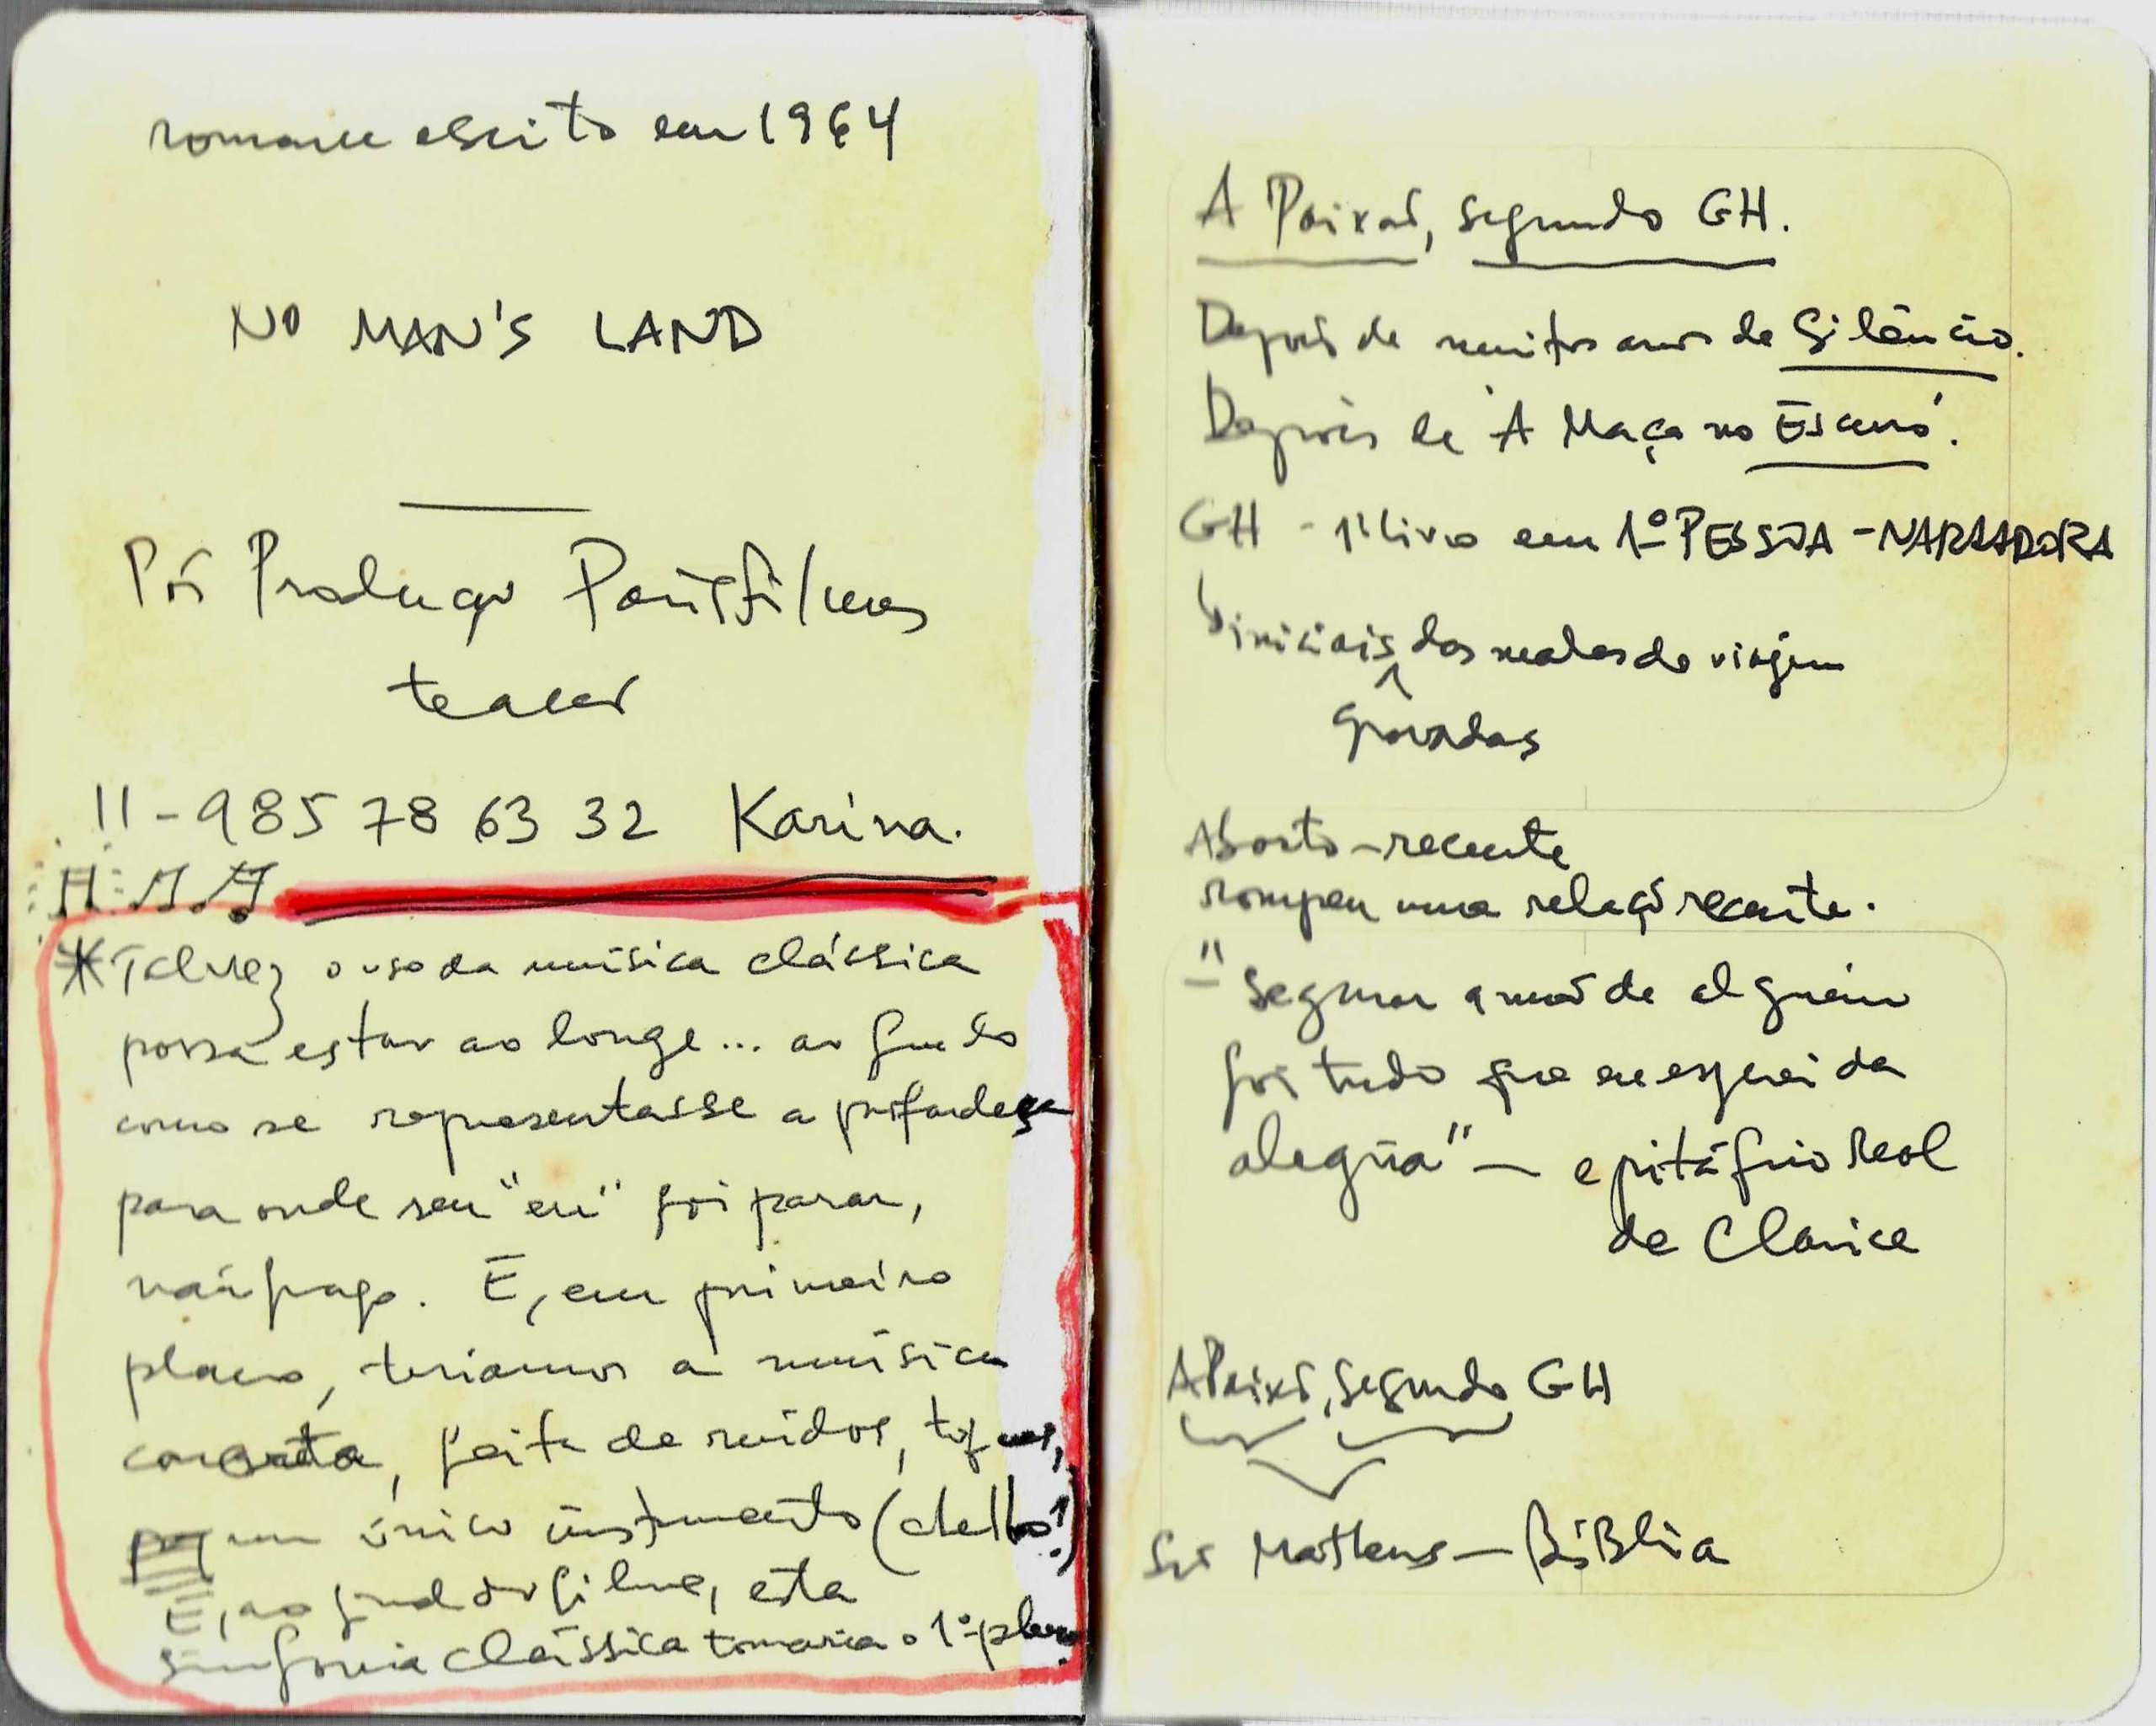 romance escrito em 1964
NO MAN'S LAND
Pós Produção Parisfilmes
teaser
11-985 78 63 32 Karina.
* Talvez o uso da música clássica
possa estar ao longe... ao fundo
como se representasse a profundeza
para onde seu "eu" foi parar,
náufrago. E, em primeiro
plano, teríamos a música
concreta, feita de ruídos, toques,
um único instrumento (chello?!)
E, ao final do filme, esta
sinfonia clássica tomaria o 1º plano.
A Paixão, segundo GH.
Depois de muitos anos de Silêncio.
Depois de 'A Maça no Escuro'.
GH - 1º livro em 1º PESSOA - NARRADORA
iniciais das malas de viagem
gravadas
Aborto - recente
rompeu uma relação recente.
- "Segurar a mão de alguém
foi tudo que eu esperei da
alegria" - epitáfio real
de Clarice
A Paixão, segundo GH
São Matheus - BíBlia